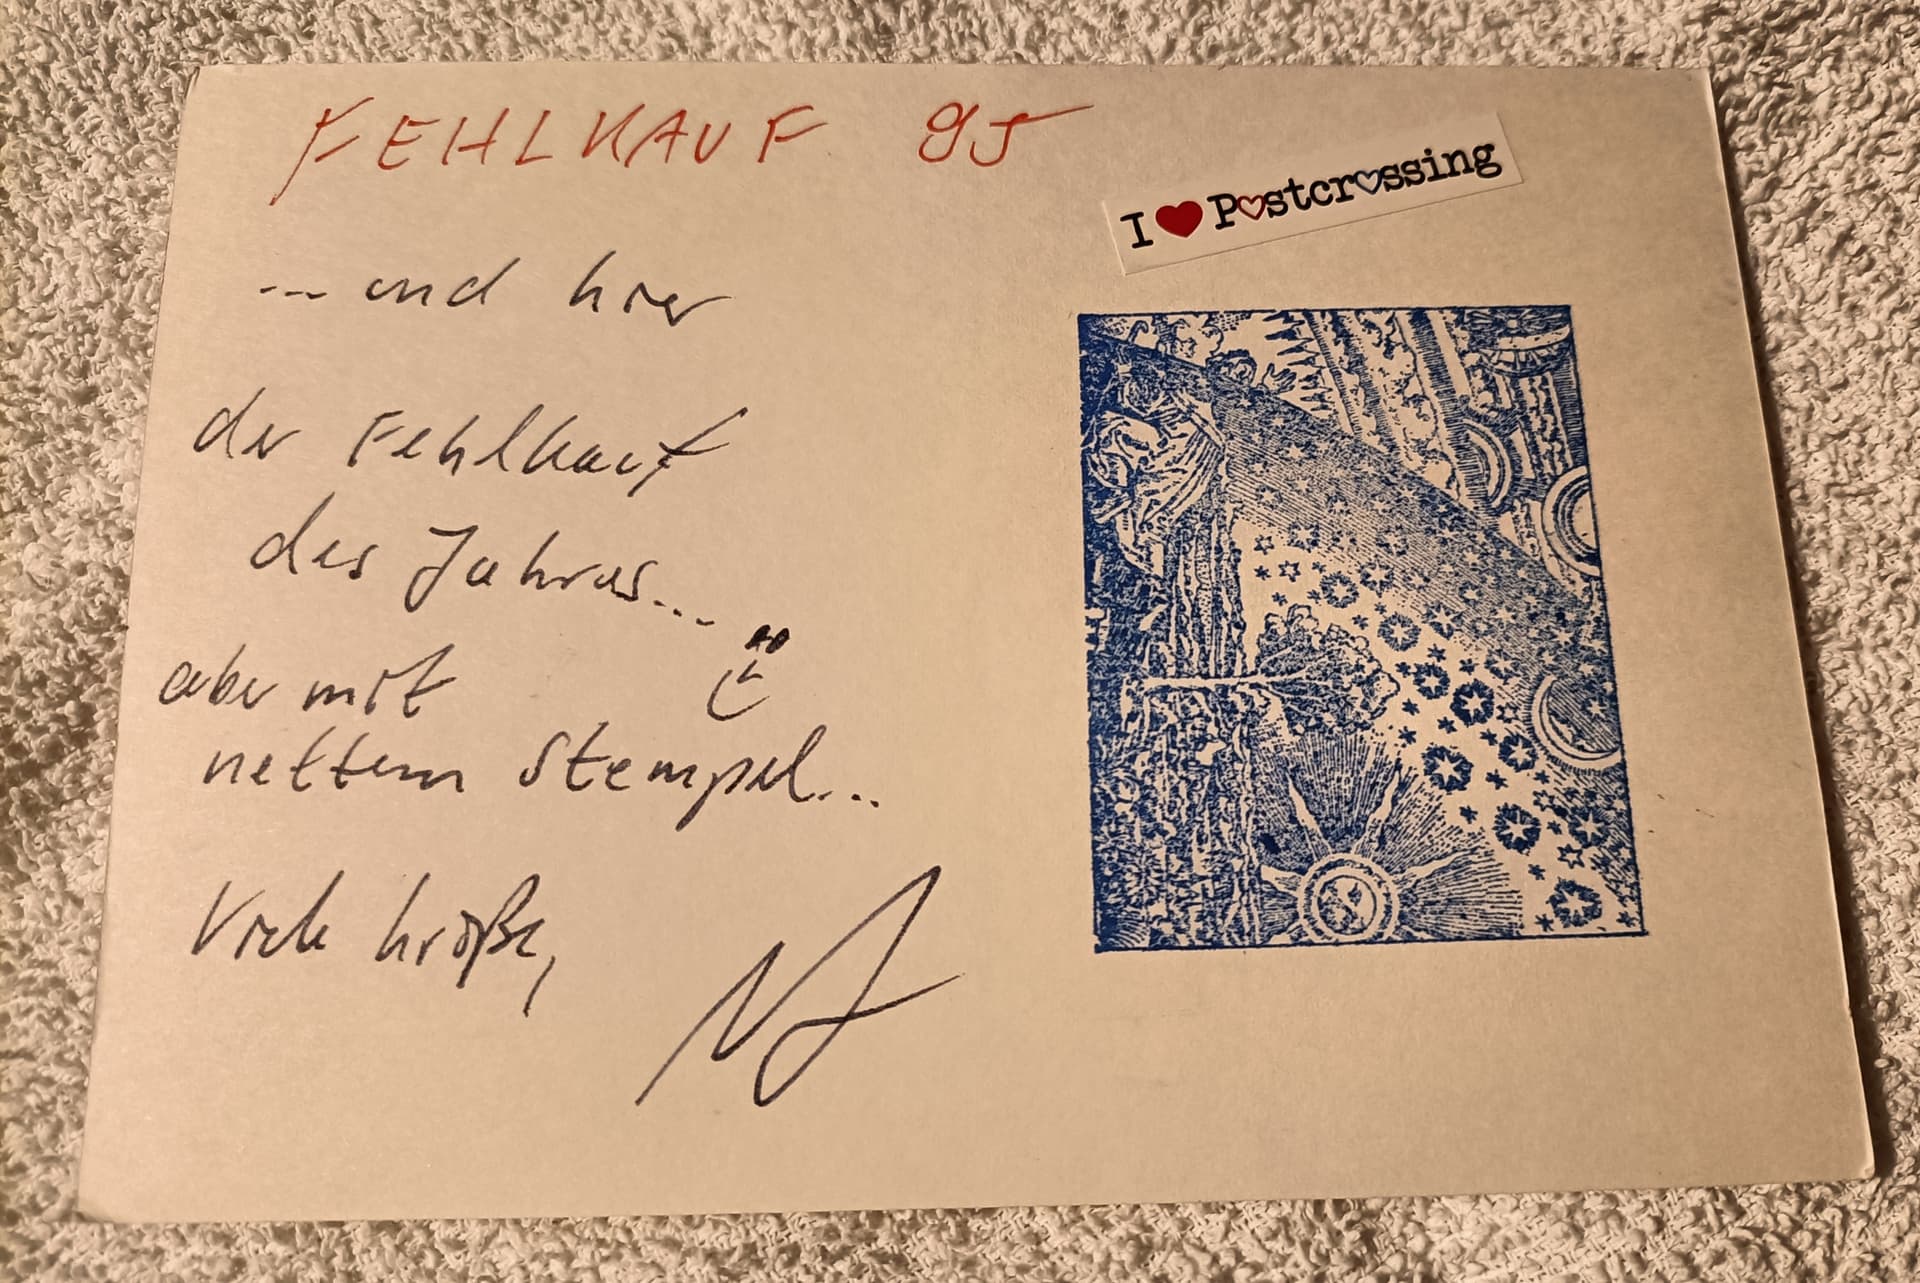 FEHLKAUF 95
I ❤ Postcrossing
... und hier
der Fehlkauf
des Jahres...
aber mit
nettem Stempel...
Viele Grüße,